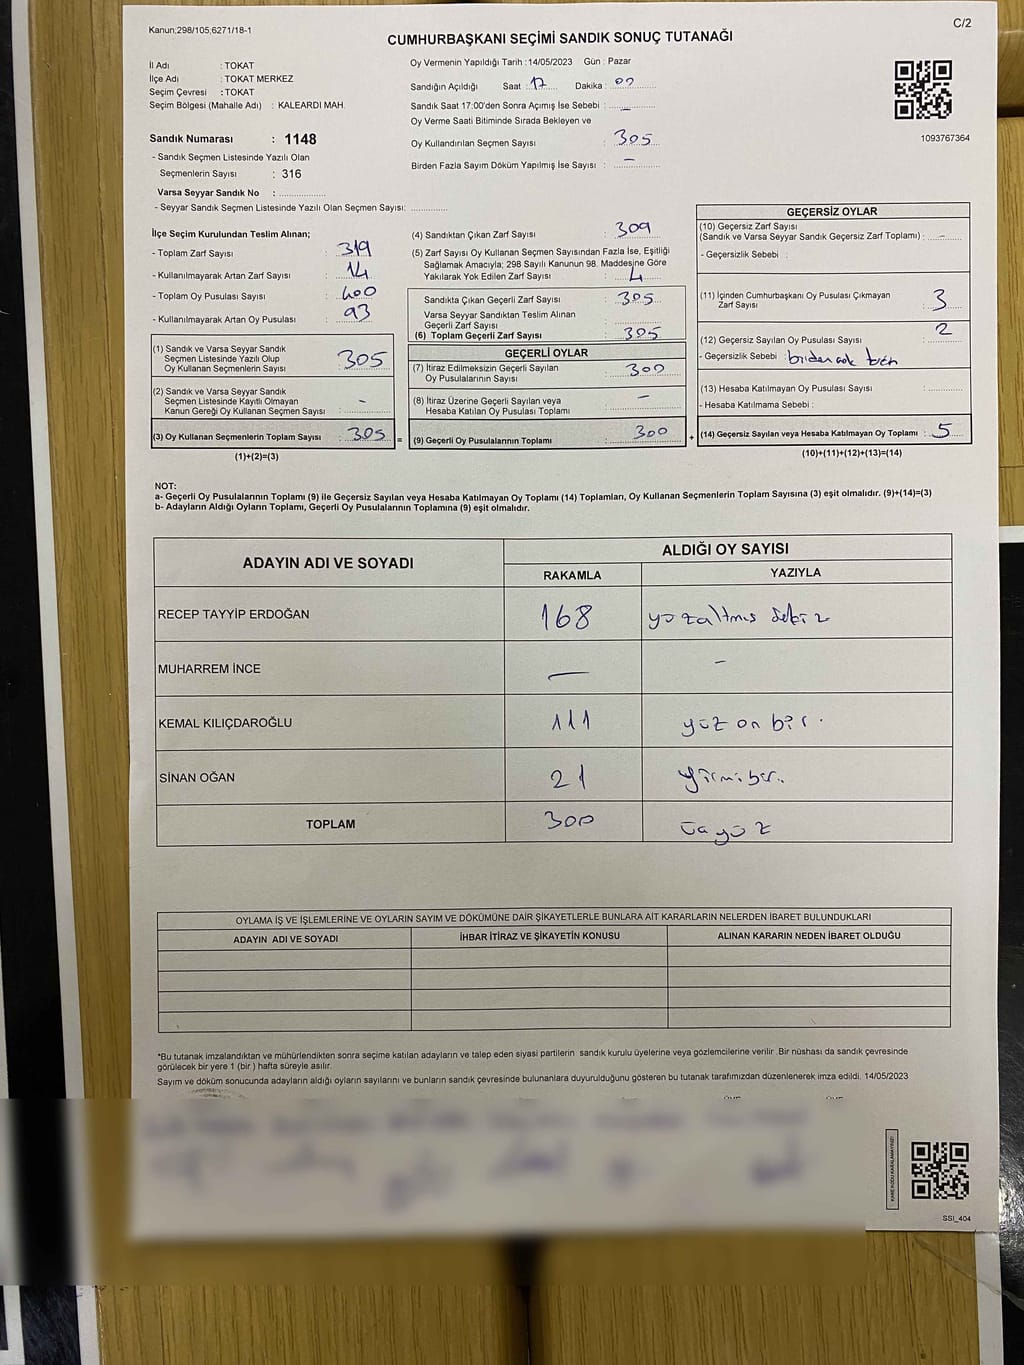 Kanun;298/105;6271/18-1
C/2
CUMHURBAŞKANI SEÇİMİ SANDIK SONUÇ TUTANAĞI
İl Adı : TOKAT
İlçe Adı : TOKAT MERKEZ
Seçim Çevresi : TOKAT
Seçim Bölgesi (Mahalle Adı) : KALEARDI MAH.
Sandık Numarası : 1148
- Sandık Seçmen Listesinde Yazılı Olan
Seçmenlerin Sayısı : 316
Varsa Seyyar Sandık No :
- Seyyar Sandık Seçmen Listesinde Yazılı Olan Seçmen Sayısı:
Oy Vermenin Yapıldığı Tarih : 14/05/2023 Gün : Pazar
Sandığın Açıldığı Saat : 17 Dakika : 00
Sandık Saat 17:00'den Sonra Açımış İse Sebebi : —
Oy Verme Saati Bitiminde Sırada Bekleyen ve
Oy Kullandırılan Seçmen Sayısı : 305
Birden Fazla Sayım Döküm Yapılmış İse Sayısı : —
1093767364
İlçe Seçim Kurulundan Teslim Alınan;
- Toplam Zarf Sayısı : 319
- Kullanılmayarak Artan Zarf Sayısı : 14
- Toplam Oy Pusulası Sayısı : 400
- Kullanılmayarak Artan Oy Pusulası : 93
(1) Sandık ve Varsa Seyyar Sandık
Seçmen Listesinde Yazılı Olup
Oy Kullanan Seçmenlerin Sayısı : 305
(2) Sandık ve Varsa Seyyar Sandık
Seçmen Listesinde Kayıtlı Olmayan
Kanun Gereği Oy Kullanan Seçmen Sayısı : -
(3) Oy Kullanan Seçmenlerin Toplam Sayısı : 305 =
(1)+(2)=(3)
(4) Sandıktan Çıkan Zarf Sayısı : 309
(5) Zarf Sayısı Oy Kullanan Seçmen Sayısından Fazla İse, Eşitliği
Sağlamak Amacıyla; 298 Sayılı Kanunun 98. Maddesine Göre
Yakılarak Yok Edilen Zarf Sayısı : 4
Sandıkta Çıkan Geçerli Zarf Sayısı : 305
Varsa Seyyar Sandıktan Teslim Alınan
Geçerli Zarf Sayısı :
(6) Toplam Geçerli Zarf Sayısı : 305
GEÇERLİ OYLAR
(7) İtiraz Edilmeksizin Geçerli Sayılan
Oy Pusulalarının Sayısı : 300
(8) İtiraz Üzerine Geçerli Sayılan veya
Hesaba Katılan Oy Pusulası Toplamı : —
(9) Geçerli Oy Pusulalarının Toplamı : 300 +
GEÇERSİZ OYLAR
(10) Geçersiz Zarf Sayısı
(Sandık ve Varsa Seyyar Sandık Geçersiz Zarf Toplamı) : -
- Geçersizlik Sebebi :
(11) İçinden Cumhurbaşkanı Oy Pusulası Çıkmayan
Zarf Sayısı : 3
(12) Geçersiz Sayılan Oy Pusulası Sayısı : 2
- Geçersizlik Sebebi :
(13) Hesaba Katılmayan Oy Pusulası Sayısı :
- Hesaba Katılmama Sebebi :
(14) Geçersiz Sayılan veya Hesaba Katılmayan Oy Toplamı : 5
(10)+(11)+(12)+(13)=(14)
NOT:
a- Geçerli Oy Pusulalarının Toplamı (9) ile Geçersiz Sayılan veya Hesaba Katılmayan Oy Toplamı (14) Toplamları, Oy Kullanan Seçmenlerin Toplam Sayısına (3) eşit olmalıdır. (9)+(14)=(3)
b- Adayların Aldığı Oyların Toplamı, Geçerli Oy Pusulalarının Toplamına (9) eşit olmalıdır.
ADAYIN ADI VE SOYADI
ALDIĞI OY SAYISI
RAKAMLA YAZIYLA
RECEP TAYYİP ERDOĞAN 168 yüzaltmış sekiz
MUHARREM İNCE — -
KEMAL KILIÇDAROĞLU 111 yüz on bir.
SİNAN OĞAN 21 yirmibir.
TOPLAM 300 üçyüz
OYLAMA İŞ VE İŞLEMLERİNE VE OYLARIN SAYIM VE DÖKÜMÜNE DAİR ŞİKAYETLERLE BUNLARA AİT KARARLARIN NELERDEN İBARET BULUNDUKLARI
ADAYIN ADI VE SOYADI İHBAR İTİRAZ VE ŞİKAYETİN KONUSU ALINAN KARARIN NEDEN İBARET OLDUĞU
*Bu tutanak imzalandıktan ve mühürlendikten sonra seçime katılan adayların ve talep eden siyasi partilerin sandık kurulu üyelerine veya gözlemcilerine verilir .Bir nüshası da sandık çevresinde
görülecek bir yere 1 (bir ) hafta süreyle asılır.
Sayım ve döküm sonucunda adayların aldığı oyların sayılarını ve bunların sandık çevresinde bulunanlara duyurulduğunu gösteren bu tutanak tarafımızdan düzenlenerek imza edildi. 14/05/2023
KARE KODU KARALAMAYINIZ!
SSI_404